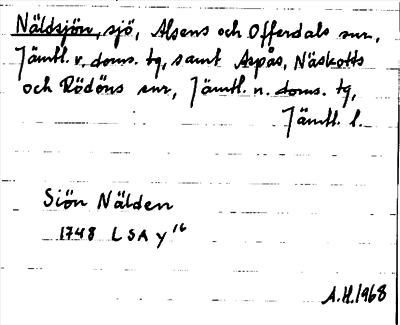 Näldsjön, sjö, Alsens och Offerdals snr,
Jämtl. v. doms. tg, samt Aspås, Näskotts
och Rödöns snr, Jämtl. n. doms. tg,
Jämtl. l.
Siön Nälden
1748 LSA y¹⁶
A.H. 1968